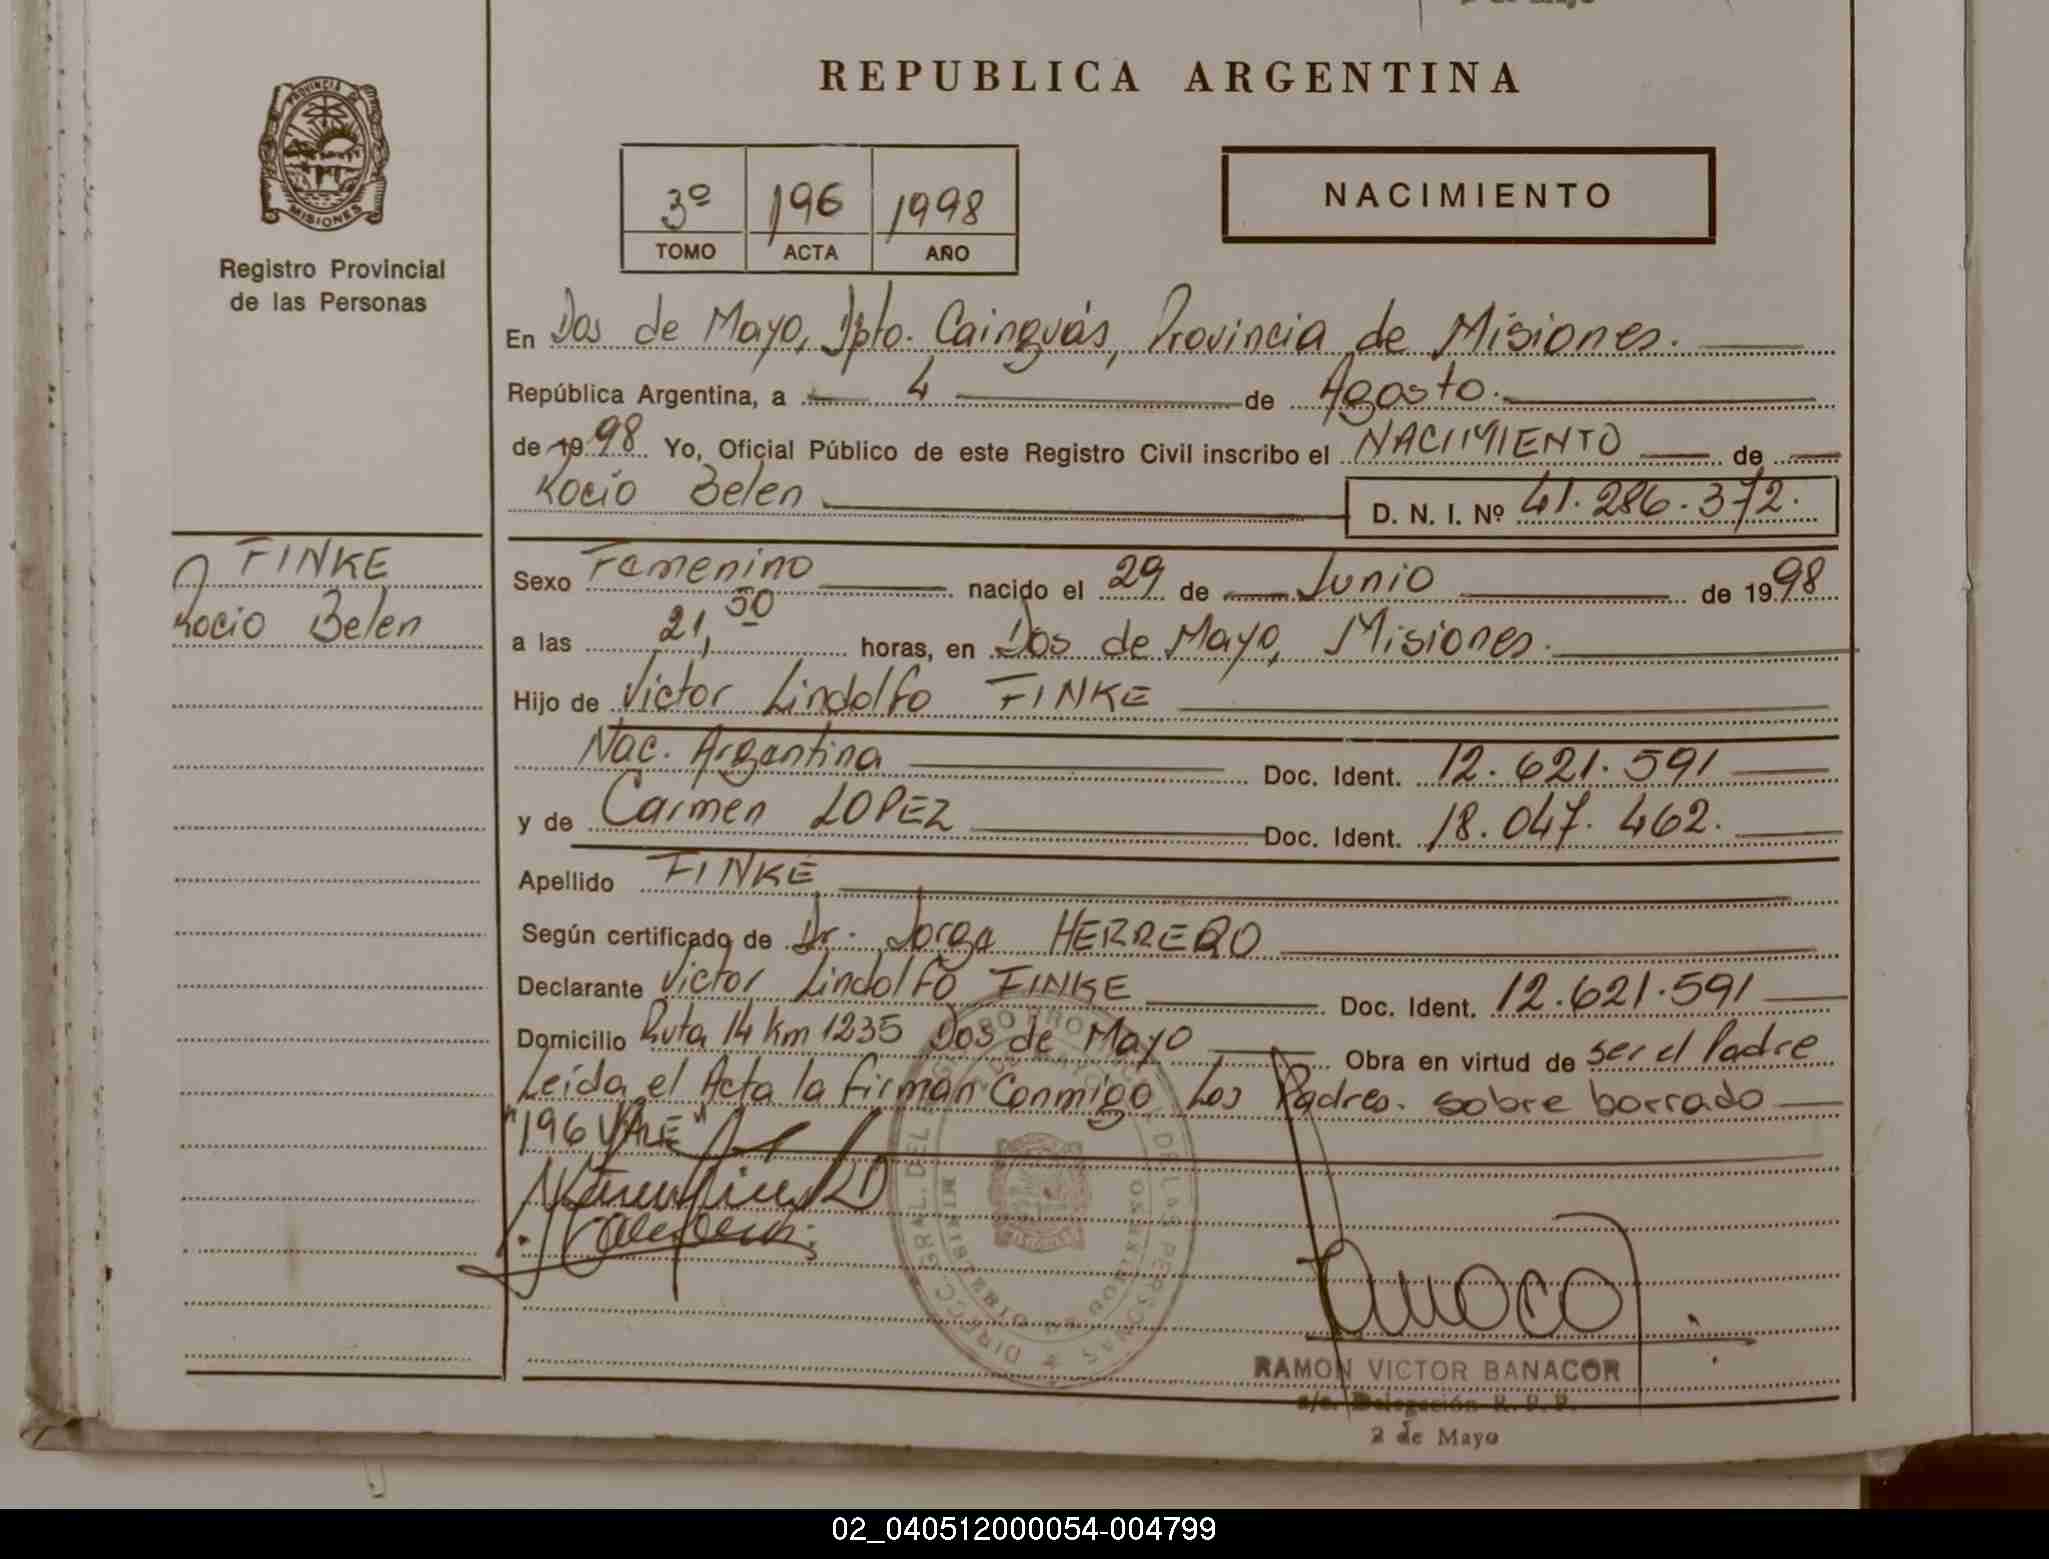 REPUBLICA ARGENTINA
PROVINCIA DE
MISIONES
Registro Provincial
de las Personas
3º 196 1998
TOMO ACTA AÑO
NACIMIENTO
En Dos de Mayo, Dpto. Cainguás, Provincia de Misiones.
República Argentina, a 4 de Agosto.
de 19 98 Yo, Oficial Público de este Registro Civil inscribo el NACIMIENTO de
Rocio Belen D. N. I. Nº 41.286.372.
FINKE
Rocio Belen
Sexo Femenino nacido el 29 de Junio de 19 98
a las 21, 50 horas, en Dos de Mayo, Misiones.
Hijo de Victor Lindolfo FINKE
Nac. Argentina Doc. Ident. 12.621.591
y de Carmen LOPEZ Doc. Ident. 18.047.462.
Apellido FINKE
Según certificado de Dr. Jorge HERRERO
Declarante Victor Lindolfo FINKE Doc. Ident. 12.621.591
Domicilio Ruta 14 km 1235 Dos de Mayo Obra en virtud de ser el Padre
Leída el Acta la firman Conmigo Los Padres. sobre borrado
"196 VALE"
RAMON VICTOR BANACOR
Delegación R. P. P.
2 de Mayo
02_040512000054-004799